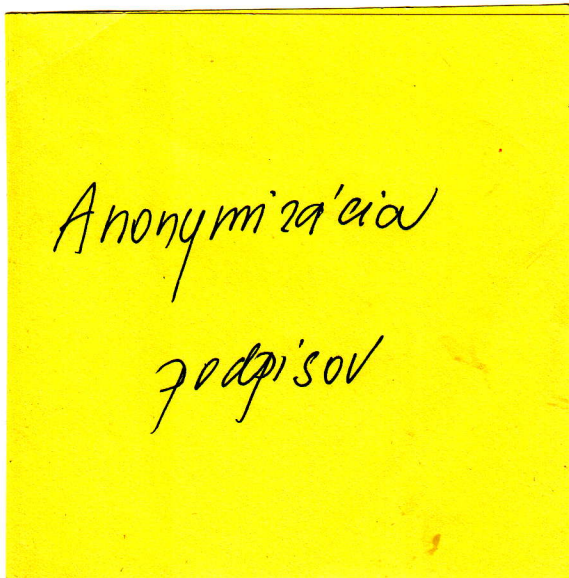 Anonymizácia
podpisov